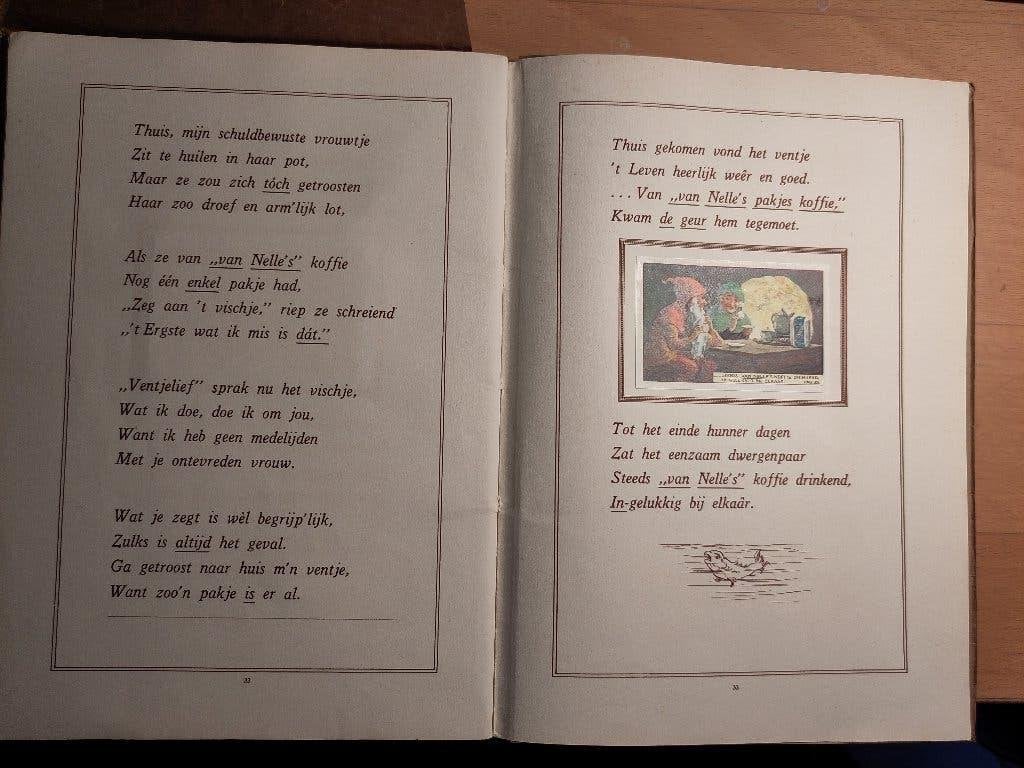 Thuis, mijn schuldbewuste vrouwtje
Zit te huilen in haar pot,
Maar ze zou zich tóch getroosten
Haar zoo droef en arm'lijk lot,
Als ze van „van Nelle's" koffie
Nog één enkel pakje had,
„Zeg aan 't vischje," riep ze schreiend
„'t Ergste wat ik mis is dát."
„Ventjelief" sprak nu het vischje,
Wat ik doe, doe ik om jou,
Want ik heb geen medelijden
Met je ontevreden vrouw.
Wat je zegt is wèl begrijp'lijk,
Zulks is altijd het geval.
Ga getroost naar huis m'n ventje,
Want zoo'n pakje is er al.
Thuis gekomen vond het ventje
't Leven heerlijk weêr en goed.
...Van „van Nelle's pakjes koffie,"
Kwam de geur hem tegemoet.
Tot het einde hunner dagen
Zat het eenzaam dwergenpaar
Steeds „van Nelle's" koffie drinkend,
In-gelukkig bij elkaâr.
33